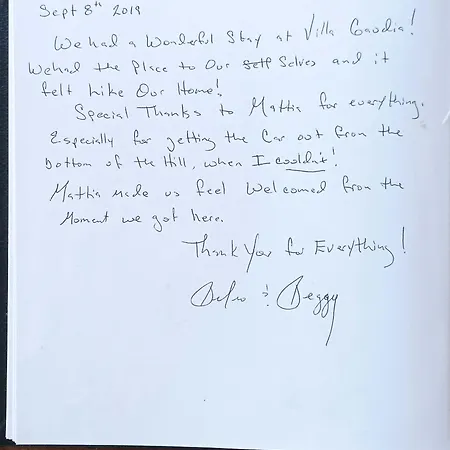 Sept 8th 2019
We had a Wonderful Stay at Villa Gaudia!
We had the Place to Our self Selves and it
felt Like Our Home!
Special Thanks to Mattia for everything.
Especially for getting the Car out from the
bottom of the Hill, when I couldn't!
Mattia made us feel Welcomed from the
Moment we got here.
Thank You for Everything!
& Peggy